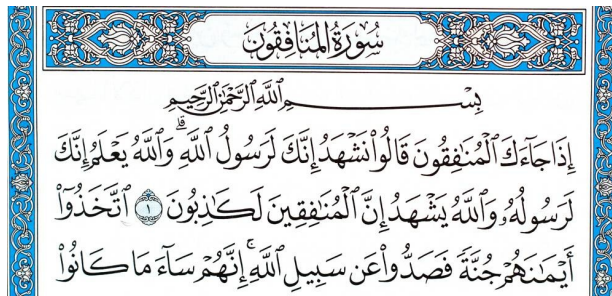 سُورَةُ المُنَافِقُونَ
بِسْمِ اللَّهِ الرَّحْمَٰنِ الرَّحِيمِ
إِذَا جَآءَكَ ٱلْمُنَٰفِقُونَ قَالُوا۟ نَشْهَدُ إِنَّكَ لَرَسُولُ ٱللَّهِ ۗ وَٱللَّهُ يَعْلَمُ إِنَّكَ
لَرَسُولُهُۥ وَٱللَّهُ يَشْهَدُ إِنَّ ٱلْمُنَٰفِقِينَ لَكَٰذِبُونَ ١ ٱتَّخَذُوٓا۟
أَيْمَٰنَهُمْ جُنَّةً فَصَدُّوا۟ عَن سَبِيلِ ٱللَّهِ ۚ إِنَّهُمْ سَآءَ مَا كَانُوا۟